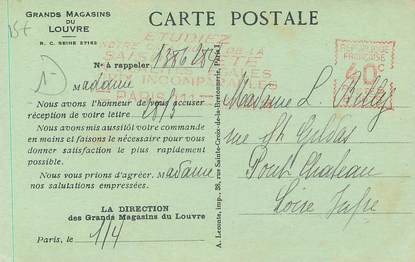 15f
GRANDS MAGASINS
DU
LOUVRE
R. C. SEINE 27162
CARTE POSTALE
ETUDIEZ
NOTRE CATALOGUE DE LA
PARIS
REPUBLIQUE
FRANÇAISE
40c
POSTES
No à rappeler 1386284
1-
Madame
Nous avons l'honneur de vous accuser
réception de votre lettre 28/3
Nous avons mis aussitôt votre commande
en mains et faisons le nécessaire pour vous
donner satisfaction le plus rapidement
possible.
Nous vous prions d'agréer, Madame
nos salutations empressées.
LA DIRECTION
des Grands Magasins du Louvre
Paris, le 1/4
A. Leconte, imp., 38, rue Sainte-Croix-de-la-Bretonnerie, Paris
Madame L. Billy
rue St Gildas
Pont Chateau
Loire Infre